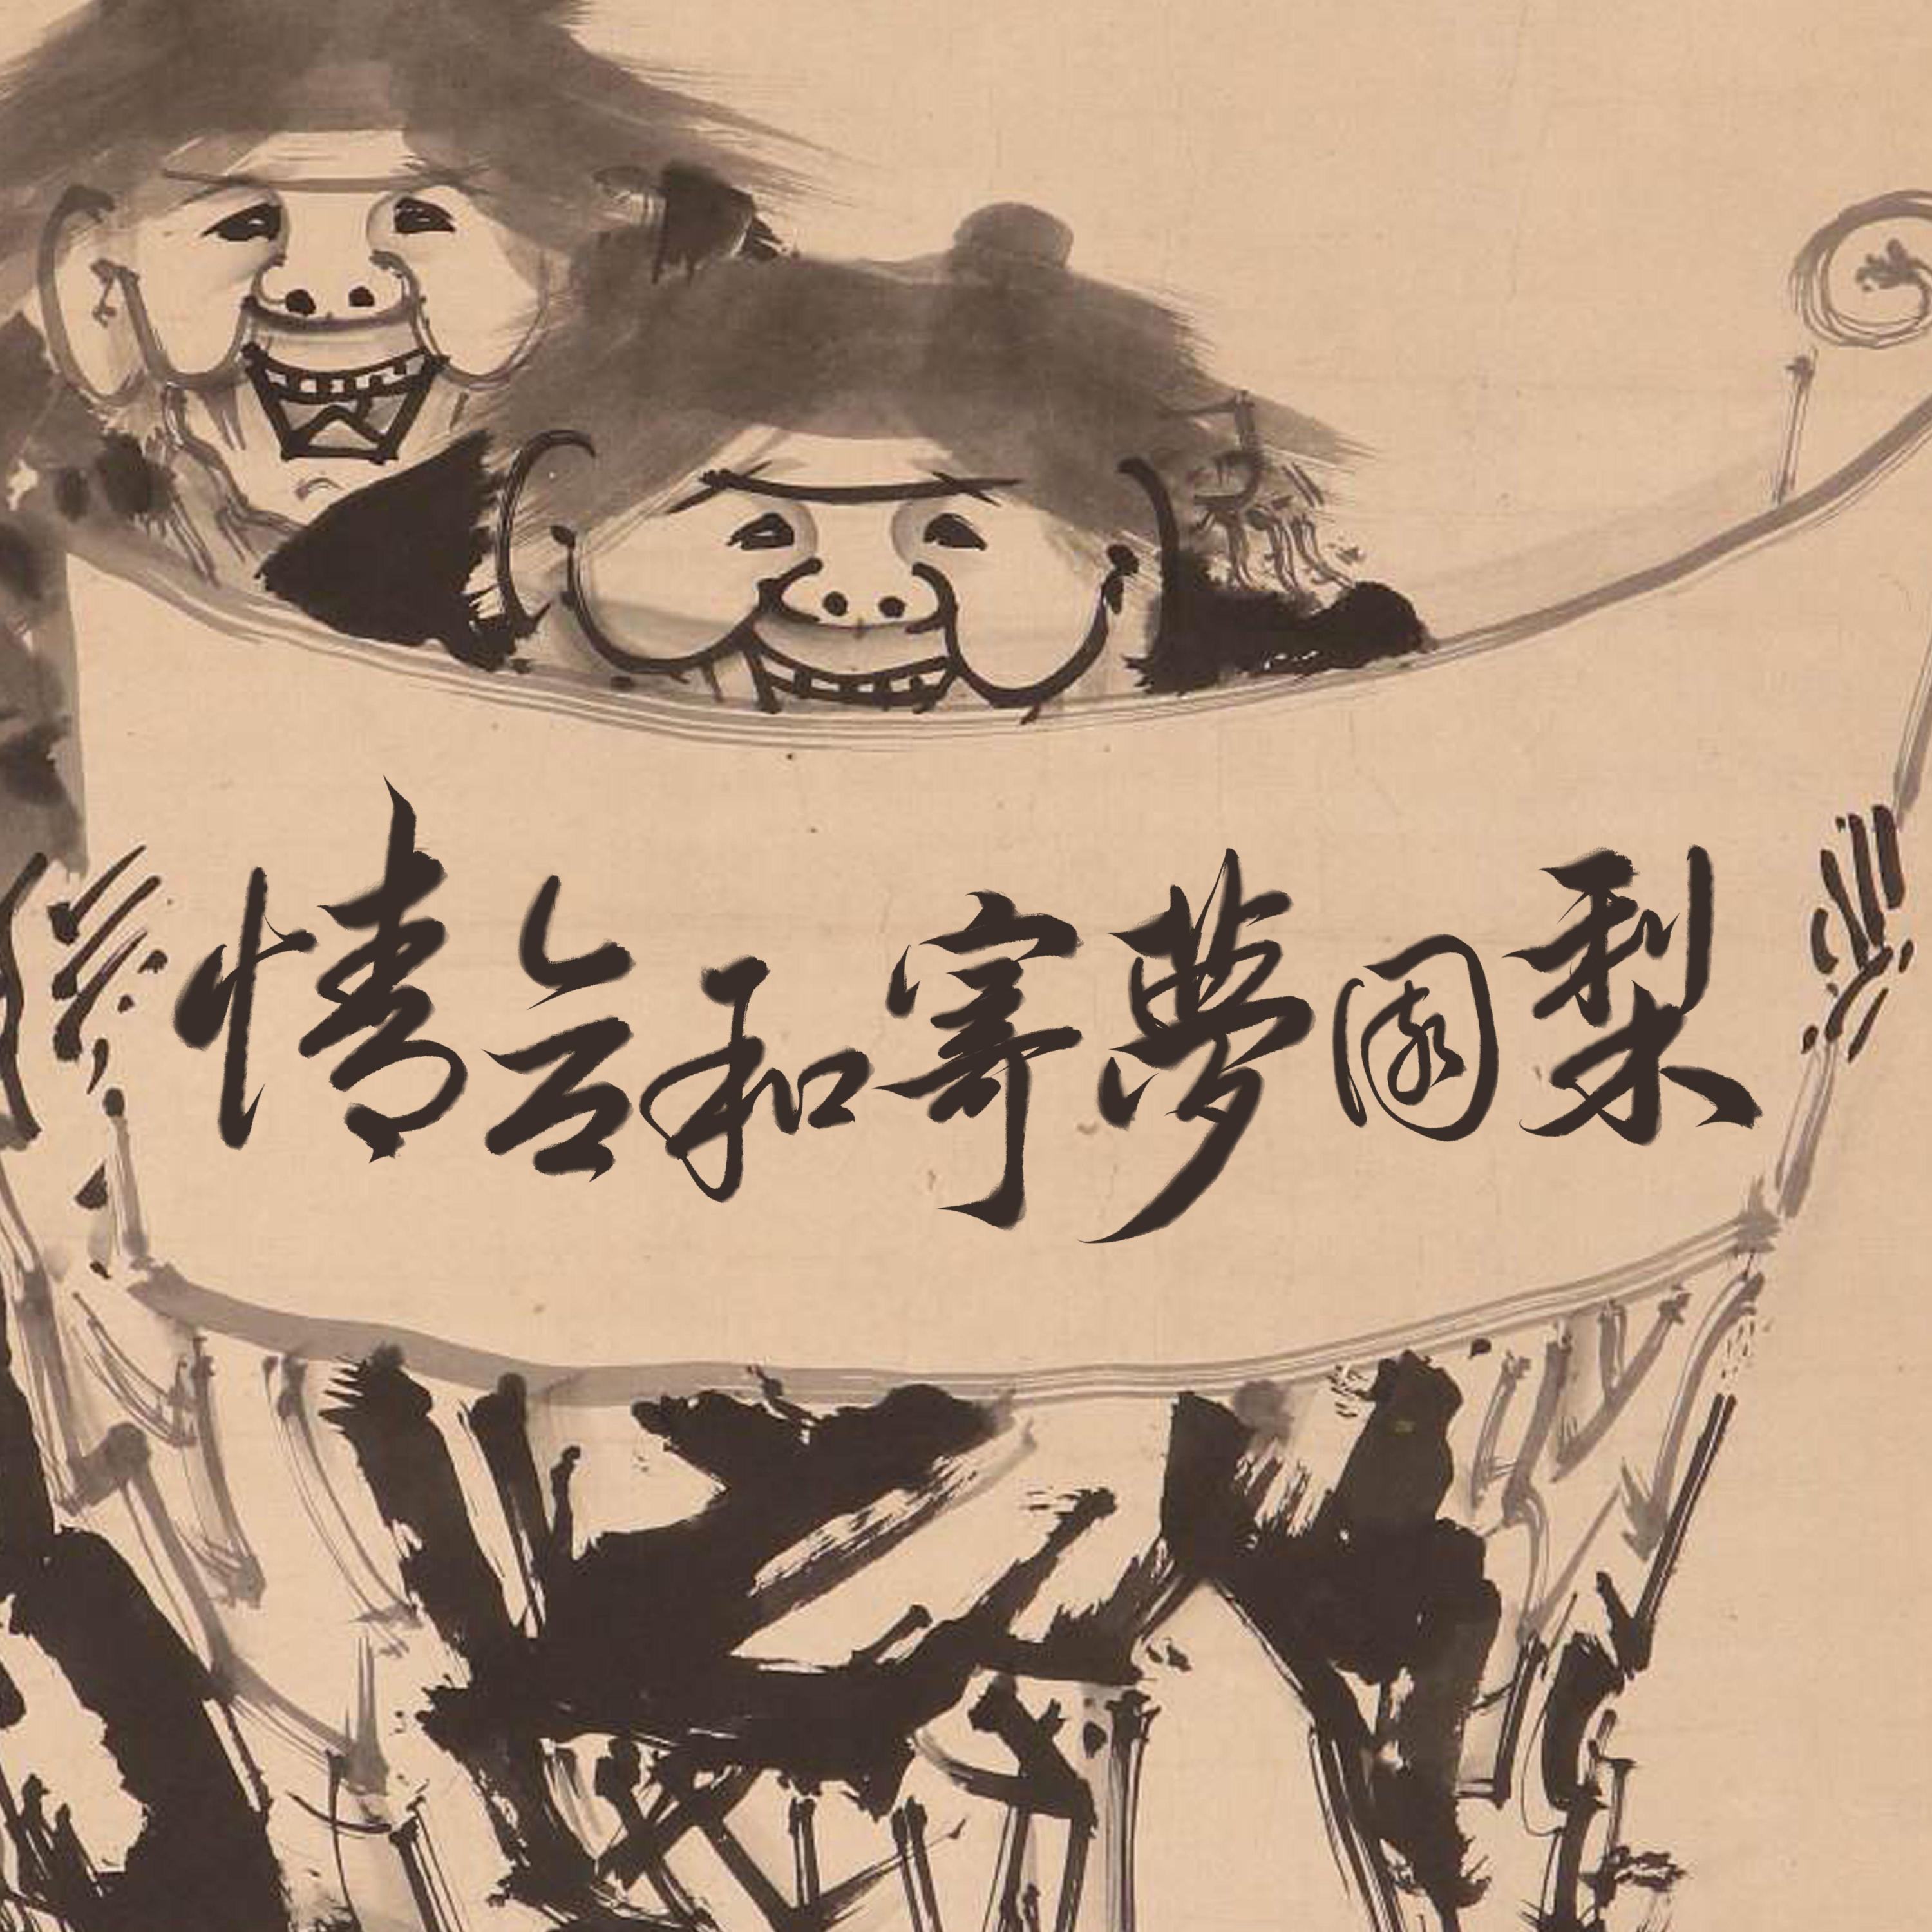 梨園夢寄和合情